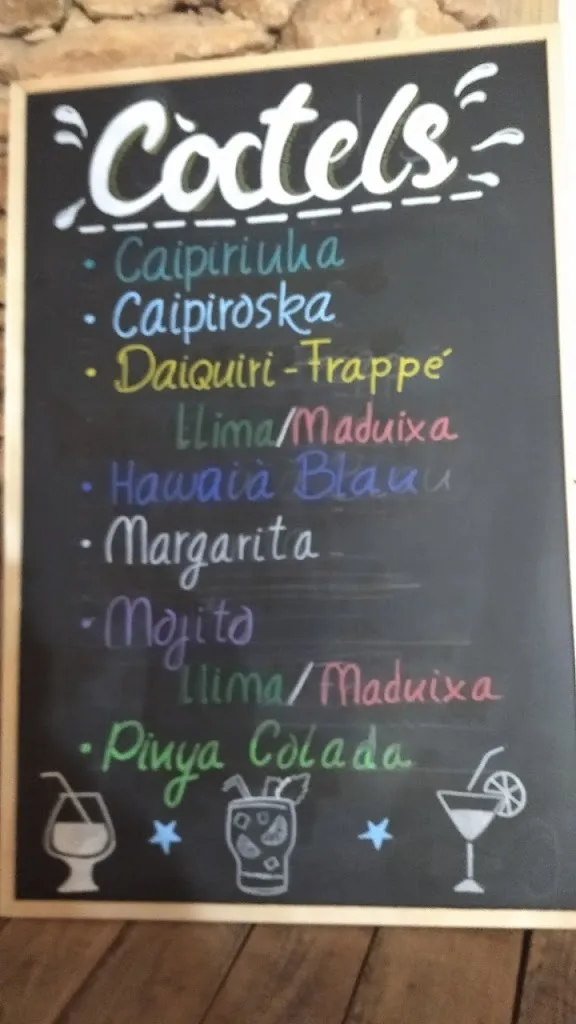 Còctels
• Caipirinha
• Caipiroska
• Daiquiri - Frappé
Llima/Maduixa
• Hawaià Blau
• Margarita
• Mojito
Llima/Maduixa
• Pinya Colada